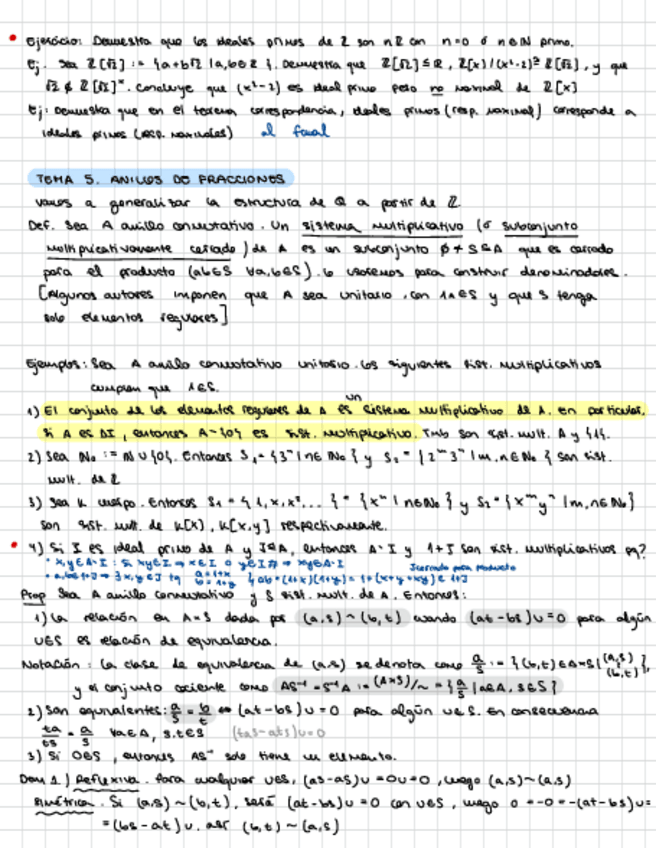 • Ejercicio: Demuestra que los ideales primos de Z son nZ con n=0 ó n∈N primo.
Ej. Sea Z[√2] := {a+b√2 | a,b∈Z}. Demuestra que Z[√2] ≤ R, Z[x]/(x²-2) ≅ Z[√2], y que
√2 ∉ Z[√2]*. Concluye que (x²-2) es ideal primo pero no maximal de Z[x]
Ej: Demuestra que en el teorema correspondencia, ideales primos (resp. maximal) corresponde a
ideales primos (resp. maximales) al final
TEMA 5. ANILLOS DE FRACCIONES
vamos a generalizar la estructura de Q a partir de Z.
Def. Sea A anillo conmutativo. Un sistema multiplicativo (ó subconjunto
multiplicativamente cerrado) de A es un subconjunto ∅ ≠ S ⊆ A que es cerrado
para el producto (ab∈S ∀a,b∈S). Lo usaremos para construir denominadores.
[Algunos autores imponen que A sea unitario, con 1A∈S y que S tenga
solo elementos regulares]
Ejemplos: Sea A anillo conmutativo unitario. Los siguientes sist. multiplicativos
cumplen que 1∈S.
1) El conjunto de los elementos regulares de A es un sistema multiplicativo de A. en particular,
si A es DI, entonces A-{0} es sist. multiplicativo. Tmb son sist. mult. A y {1}.
2) Sea N₀ := N ∪ {0}. Entonces S₁ = {3ⁿ | n∈N₀} y S₂ = {2ᵐ3ⁿ | m,n∈N₀} son sist.
mult. de Z
3) Sea K cuerpo. Entonces S₁ = {1, x, x², ...} = {xⁿ | n∈N₀} y S₂ = {xᵐyⁿ | m,n∈N₀}
son sist. mult. de K[x], K[x,y] respectivamente.
• 4) Si I es ideal primo de A y J⊴A, entonces A-I y 1+J son sist. multiplicativos pq?
• x,y∈A-I : si xy∈I ⇒ x∈I o y∈I # ⇒ xy∈A-I J cerrado para producto
• a,b∈1+J ⇒ ∃x,y∈J tq a=1+x b=1+y } ab=(1+x)(1+y)=1+(x+y+xy)∈1+J
Prop Sea A anillo conmutativo y S sist. mult. de A. Entonces:
1) La relación en A×S dada por (a,s)~(b,t) cuando (at-bs)u=0 para algún
u∈S es relación de equivalencia.
Notación: La clase de equivalencia de (a,s) se denota como a/s := {(b,t)∈A×S | (a,s)~(b,t)},
y el conjunto cociente como AS⁻¹ = S⁻¹A := (A×S)/~ = {a/s | a∈A, s∈S}
2) Son equivalentes: a/s = b/t ⇔ (at-bs)u=0 para algún u∈S. En consecuencia
ta/ts = a/s ∀a∈A, s,t∈S (tas-ats)u=0
3) Si 0∈S, entonces AS⁻¹ solo tiene un elemento.
Dem 1.) Reflexiva. Para cualquier u∈S, (as-as)u=0u=0, luego (a,s)~(a,s)
Simétrica. Si (a,s)~(b,t), será (at-bs)u=0 con u∈S, luego 0=-0=-(at-bs)u=
=(bs-at)u. así (b,t)~(a,s)